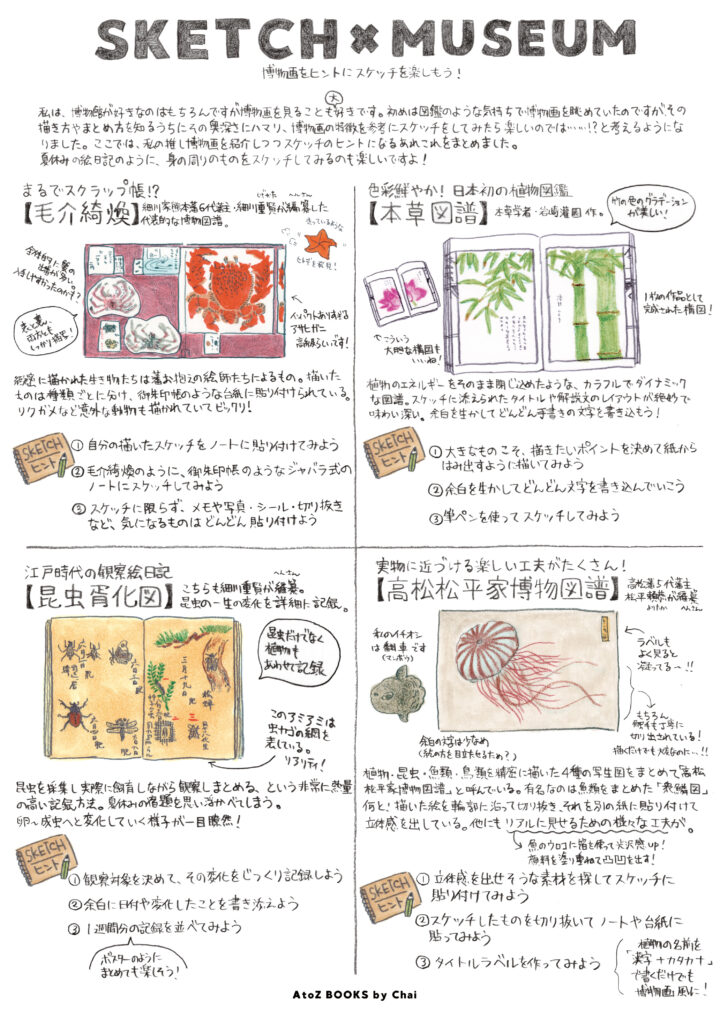 SKETCH × MUSEUM
博物画をヒントにスケッチを楽しもう！
私は、博物館が好きなのはもちろんですが博物画を見ることも大好きです。初めは図鑑のような気持ちで博物画を眺めていたのですが、その
描き方やまとめ方を知るうちにその奥深さにハマり、博物画の特徴を参考にスケッチをしてみたら楽しいのでは……!?と考えるようにな
りました。ここでは、私の推し博物画を紹介しつつスケッチのヒントになるあれこれをまとめました。
夏休みの絵日記のように、身の周りのものをスケッチしてみるのも楽しいですよ！
まるでスクラップ帳!?
【毛介綺煥】
細川家熊本藩6代藩主・細川重賢が編纂した
しげかた
へんさん
代表的な博物図譜。
生きているような
ヒトデを発見！
全体的に蟹の
出番が多い。
入手しやすかったのかナ？
表と裏、
両方とも
しっかり描写！
インパクトありすぎる
アサヒガニ
高級らしいです！
術密に描かれた生き物たちは藩お抱えの絵師たちによるもの。描いた
ものは種類ごとに分け、御朱印帳のような台紙に貼り付けられている。
リクガメなど意外な動物も描かれていてビックリ！
SKETCH
ヒント
① 自分の描いたスケッチをノートに貼り付けてみよう
② 毛介綺煥のように、御朱印帳のようなジャバラ式の
ノートにスケッチしてみよう
③ スケッチに限らず、メモや写真・シール・切り抜き
など、気になるものはどんどん貼り付けよう
色彩鮮やか！日本初の植物図鑑
【本草図譜】
本草学者・岩崎灌園 作。
竹の色のグラデーション
が美しい！
1つの作品として
完成された構図！
こういう
大胆な構図も
いいね！
植物のエネルギーをそのまま閉じ込めたような、カラフルでダイナミック
な図譜。スケッチに添えられたタイトルや解説文のレイアウトが絶妙で
味わい深い。余白を生かしてどんどん手書きの文字を書き込もう！
SKETCH
ヒント
① 大きなものこそ、描きたいポイントを決めて紙から
はみ出すように描いてみよう
② 余白を生かしてどんどん文字を書き込んでいこう
③ 筆ペンを使ってスケッチしてみよう
江戸時代の観察絵日記
【昆虫胥化図】
こちらも細川重賢が編纂。
へんさん
昆虫の一生の変化を詳細に記録。
昆虫だけでなく
植物も
あわせて記録
このアミアミは
虫カゴの網を
表している。
リアリティ！
昆虫を採集し実際に飼育しながら観察しまとめる、という非常に熱量
の高い記録方法。夏休みの宿題を思い浮かべてしまう。
卵〜成虫へと変化していく様子が一目瞭然！
SKETCH
ヒント
① 観察対象を決めて、その変化をじっくり記録しよう
② 余白に日付や変化したことを書き添えよう
③ 1週間分の記録を並べてみよう
ポスターのように
まとめても楽しそう！
実物に近づける楽しい工夫がたくさん！
【高松松平家博物図譜】
高松藩5代藩主、
松平頼恭が編纂
よりたか
へんさん
私のイチオシ
は翻車です
（マンボウ）
ラベルも
よく見ると
凝ってる〜!!
もちろん
触手も丁寧に
切り出されている！
描くだけでも大変なのに…!!
余白の文字は少なめ
（絵の方を目立たせるため？）
植物・昆虫・魚類・鳥類を精密に描いた4種の写生図をまとめて「高松
松平家博物図譜」と呼んでいる。有名なのは魚類をまとめた「衆鱗図」
何と！描いた絵を輪郭に沿って切り抜き、それを別の紙に貼り付けて
立体感を出している。他にもリアルに見せるための様々な工夫が。
魚のウロコに箔を使って光沢感UP！
顔料を塗り重ねて凸凹を出す！
SKETCH
ヒント
① 立体感を出せそうな素材を探してスケッチに
貼り付けてみよう
② スケッチしたものを切り抜いてノートや台紙に
貼ってみよう
③ タイトルラベルを作ってみよう
植物の名前を
「漢字＋カタカナ」
で書くだけでも
「博物画」風に！
AtoZ BOOKS by Chai